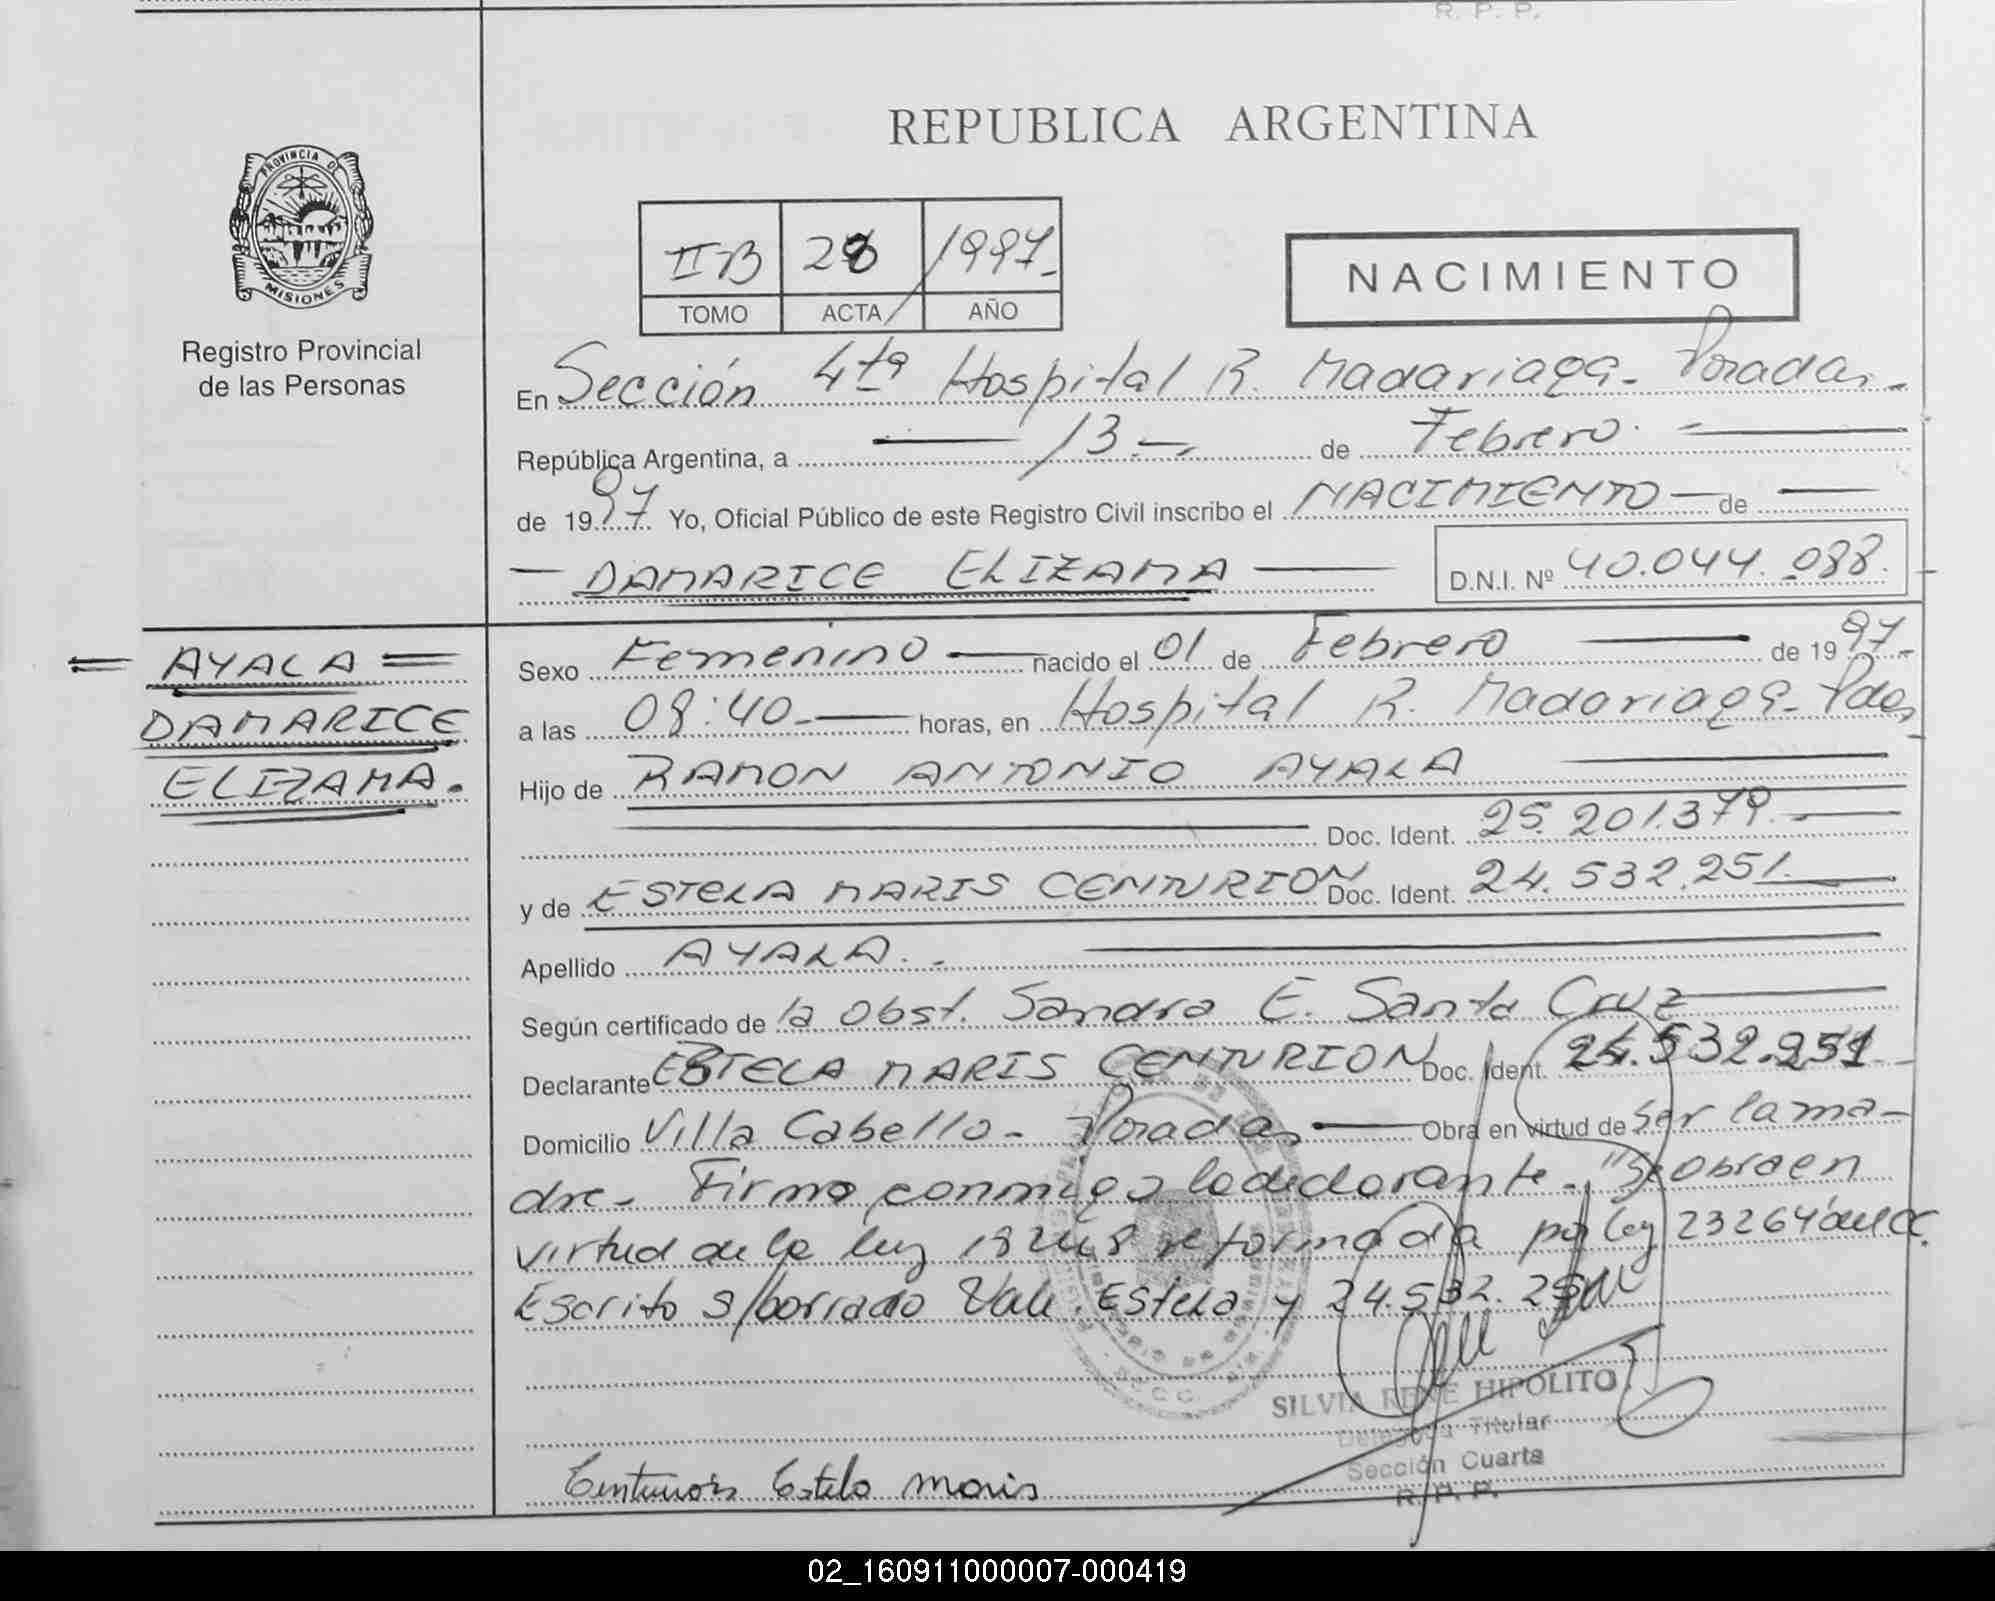 R. P. P.
REPUBLICA ARGENTINA
PROVINCIA DE
MISIONES
Registro Provincial
de las Personas
II-B 28 1997.-
TOMO ACTA AÑO
NACIMIENTO
En Sección 4ta Hospital R. Madariaga - Posadas.-
República Argentina, a 13.- de Febrero.-
de 1997 Yo, Oficial Público de este Registro Civil inscribo el NACIMIENTO de
DAMARICE ELIZAMA
D.N.I. Nº 40.044.088.
= AYALA =
DAMARICE
ELIZAMA.
Sexo Femenino nacido el 01 de Febrero de 1997.-
a las 08:40.- horas, en Hospital R. Madariaga - Pdas,
Hijo de RAMON ANTONIO AYALA
Doc. Ident. 25.201.379.-
y de ESTELA MARIS CENTURION Doc. Ident. 24.532.251.
Apellido AYALA.-
Según certificado de la Obst. Sandra E. Santa Cruz
Declarante ESTELA MARIS CENTURION Doc. Ident. 24.532.251
Domicilio Villa Cabello - Posadas Obra en virtud de ser la ma-
dre - Firma conmigo la declarante. "Se obra en
virtud de la ley reformada por ley 23264 del CC.
Escrito s/borrado Vale. Estela y 24.532.251
SILVIA RENE HIPOLITO
Delegada Titular
Sección Cuarta
R. P. P.
Centurión Estela Maris
02_160911000007-000419